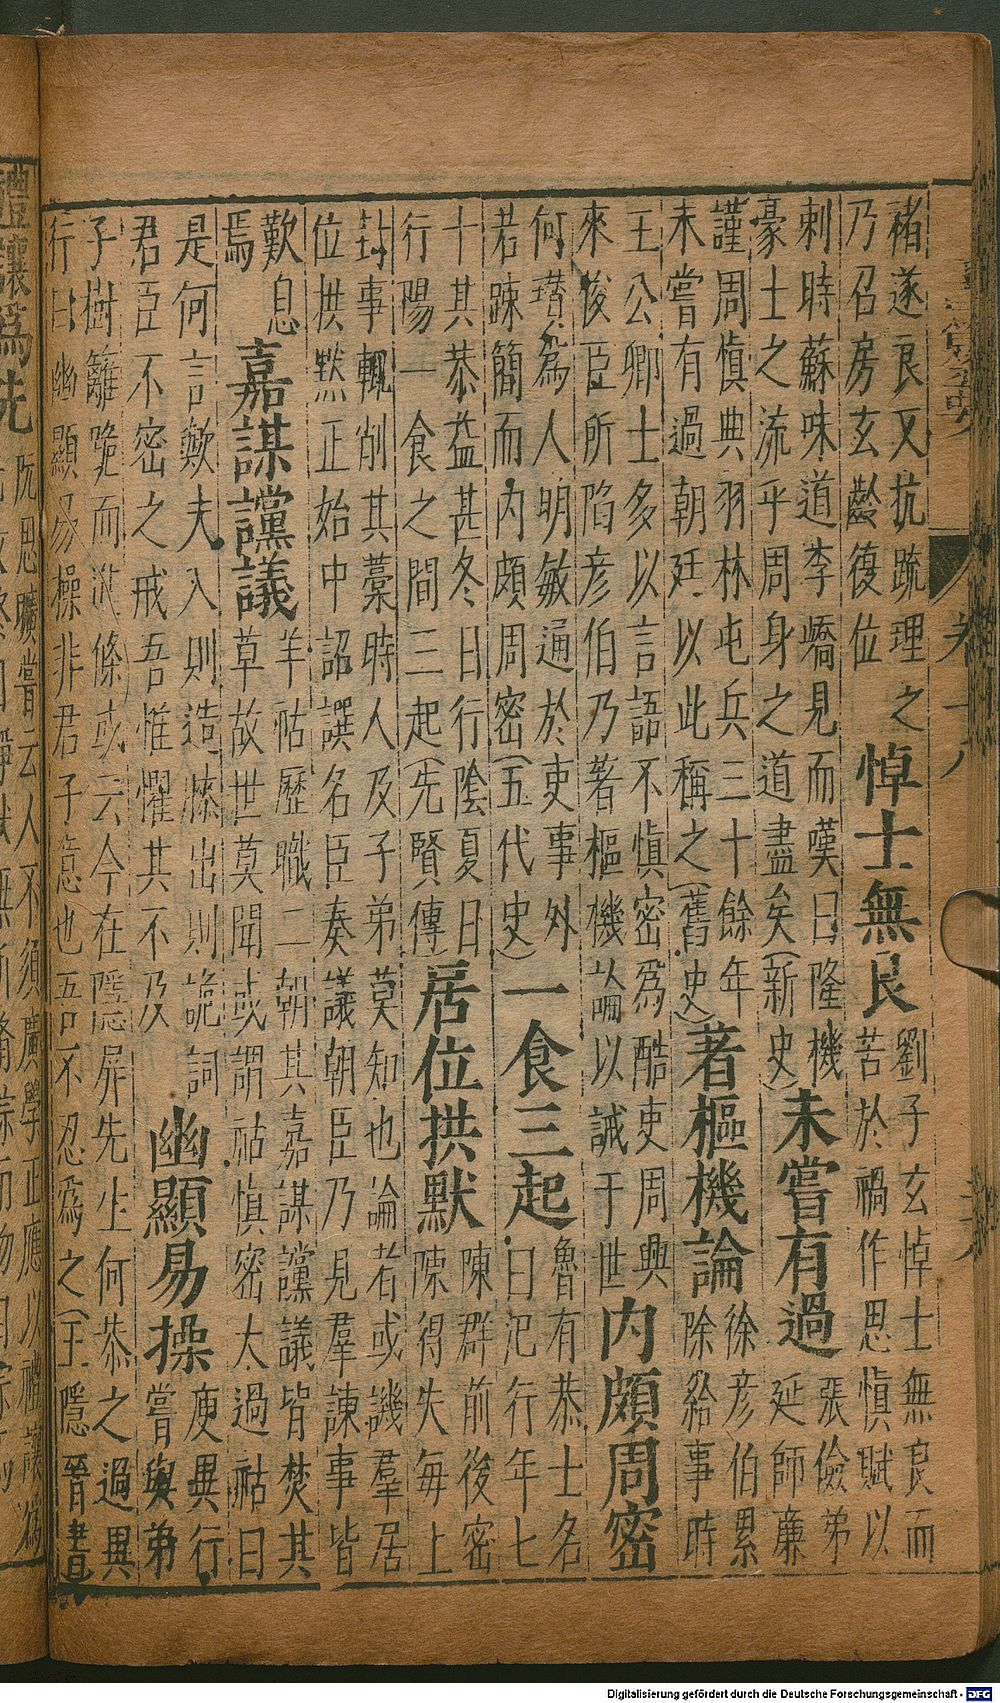 褚遂良又抗䟽理之
乃召房玄齡復位
悼士無良
劉子玄悼士無良而
苦於禍作思慎賦以
刺時蘇味道李嶠見而嘆曰隆機
豪士之流乎周身之道盡矣(新史)
未嘗有過
張儉弟
延師廉
謹周慎典羽林屯兵三十餘年
未嘗有過朝廷以此稱之(舊史)
著樞機論
徐彥伯累
除給事時
王公卿士多以言語不慎密為酷吏周興
來俊臣所陷彥伯乃著樞機論以誡于世
內頗周密
何瓚為人明敏通於吏事外
若踈簡而內頗周密(五代史)
一食三起
魯有恭士名
曰汜行年七
十其恭益甚冬日行陰夏日
行陽一食之間三起(先賢傳)
居位拱默
陳群前後密
陳得失每上
封事輒削其藁時人及子弟莫知也論者或譏羣居
位拱默正始中詔譔名臣奏議朝臣乃見羣諫事皆
歎息
焉
嘉謀讜議
羊祜歷職二朝其嘉謀讜議皆焚其
草故世莫聞或謂祜慎密太過祜曰
是何言歟夫入則造膝出則詭詞
君臣不密之戒吾惟懼其不及
幽顯易操
庾異行
嘗與弟
子樹籬跪而授條或云今在隱屏先生何恭之過異
行曰幽顯易操非君子意也吾不忍為之(王隱晉書)
禮讓為先
阮思曠嘗云人不須廣學正應以禮讓為
卷十八
Digitalisierung gefördert durch die Deutsche Forschungsgemeinschaft - DFG